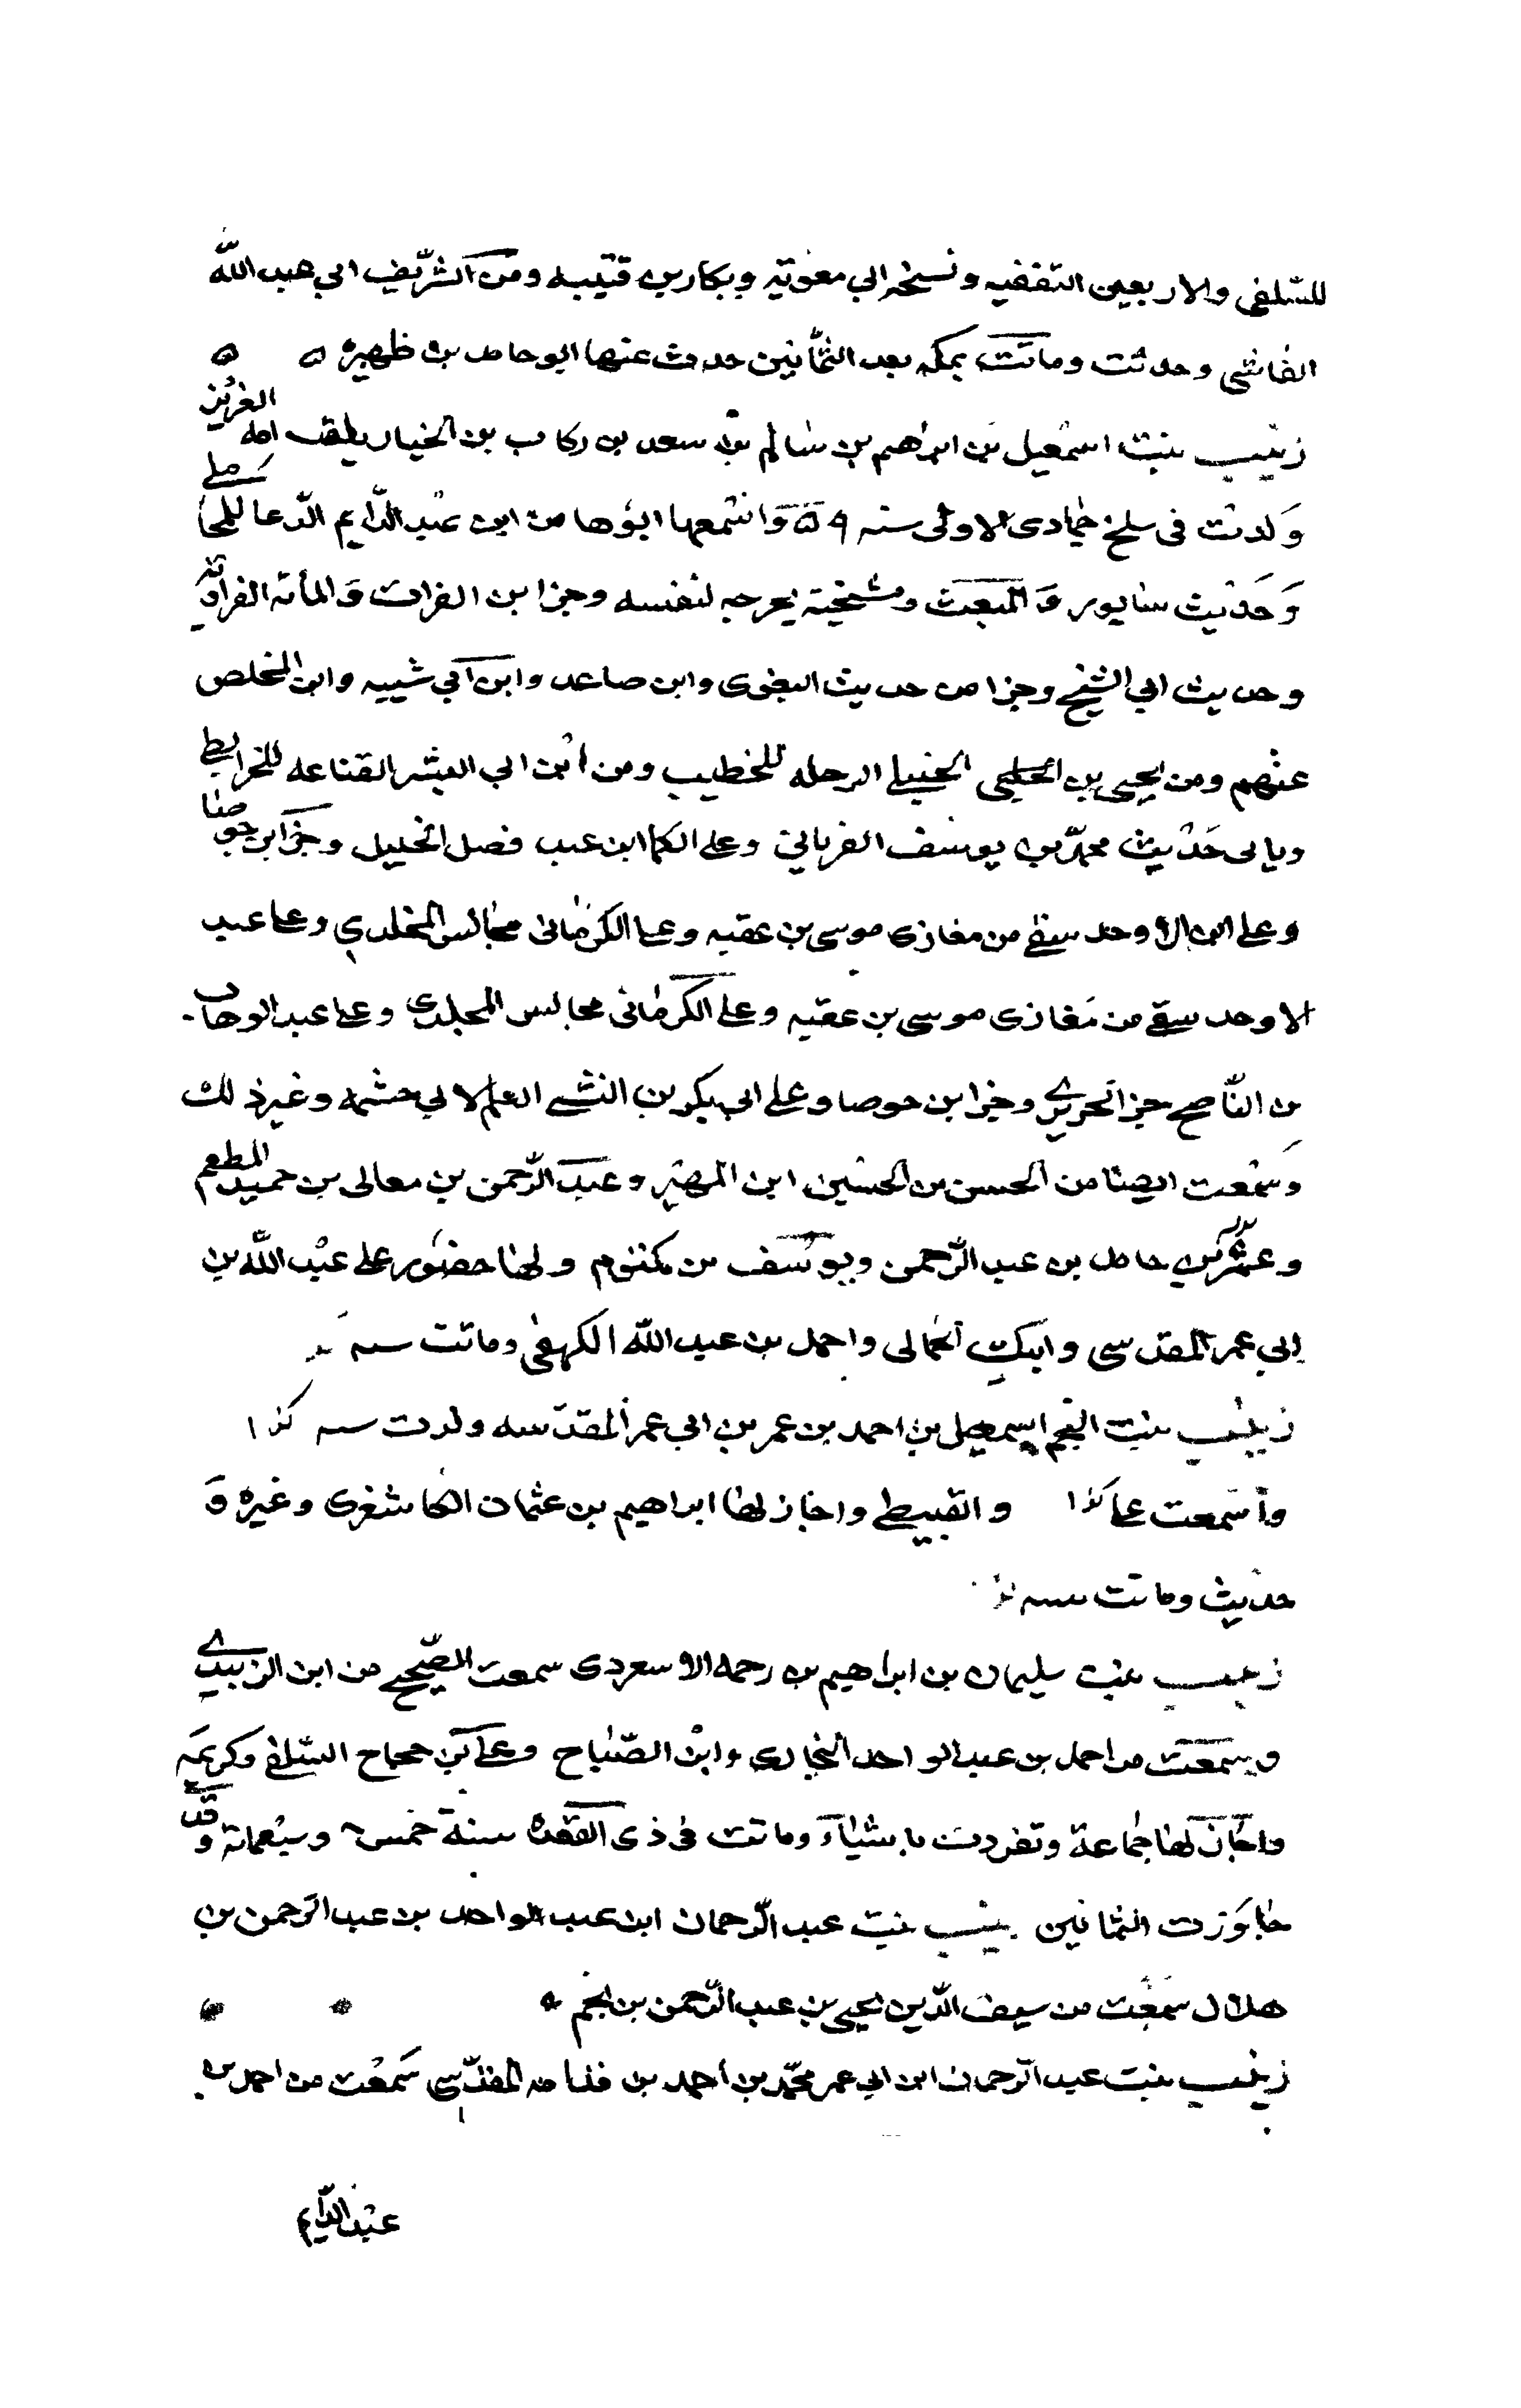 للسّلفي والاربعين الثقفيه ونسخه ابي معوية وبكار بن قتيبه ومن الشّريف ابي عبد اللّه
الفاسي وحدثت وماتت بمكه بعد الثمانين حدث عنها ابو حامد بن ظهيره ه ه
زينب بنت اسمعيل بن ابراهيم بن سالم بن سعد بن ركاب بن الخباز يلقب امه العزيز
ولدت في سلخ جمادى الاولى سنه ٥٩ واسمعها ابوها من ابن عبد الدّايم الدّعا للمحاملي
وحديث سابور والمبعث ومشيخته يخرجه لنفسه وجزا ابن الفرات والمأنه الفراوية
وحديث ابي الشيخ وجزا من حديث البغوى وابن صاعد وابن ابي شيبه وابن المخلص
عنهم ومن يحيى بن الحنبلي الرحله للخطيب ومن ابن ابي اليسر القناعه للخرايطي
وباي حديث محمّد بن يوسف الفريابي وعلى الكمال ابن عبد فضل الخليل وجزا ابن جوصا
وعلى ابن الاوحد سقى من مغازى موسى بن عقبه وعلى الكرماني مجالس المخلدي وعلى عبد
الاوحد سقى من مغازى موسى بن عقبه وعلى الكرماني مجالس المخلدى وعلى عبد الوهاب
بن النّاصح جز الحريري وجزا ابن حوصا وعلى ابي بكر بن النشبي العلم لابي خثيمه وغير ذلك
وسمعت ايضا من الحسن بن الحسين ابن المهير وعبد الرّحمن بن معالى بن حميد المطعم
وعمر بن حامد بن عبد الرّحمن ويوسف بن مكتوم ولها حضور على عبد اللّه بن
ابي عمر المقدسي وايبك الجمالى واحمد بن عبد اللّه الكهفي وماتت سنه
زينب بنت النجم اسمعيل بن احمد بن عمر بن ابي عمر المقدّسه ولدت سنه كذا
وأسمعت على كذا والقبيطي واجاز لها ابراهيم بن عثمان الكاشغرى وغيره و
حديث وماتت سنه
زينب بنت سليمان بن ابراهيم بن رحمه الاسعردى سمعت الصّحيح من ابن الزبيدي
وسمعت من احمد بن عبد الواحد البخارى وابن الصّباح وعلى بن حجاج السّلفي وكريمه
واجاز لها جماعة وتفردت باشياء وماتت في ذى القعده سنة خمس وسبعمائة وقد
جاوزت الثمانين زينب بنت عبد الرّحمان ابن عبد الواحد بن عبد الرّحمن بن
هلال سمعت من سيف الدّين يحيى بن عبد الرّحمن بن نجم
زينب بنت عبد الرّحمان ابن ابي عمر محمّد بن احمد بن قدامه المقدّسى سمعت من احمد بن
عبد الدّايم